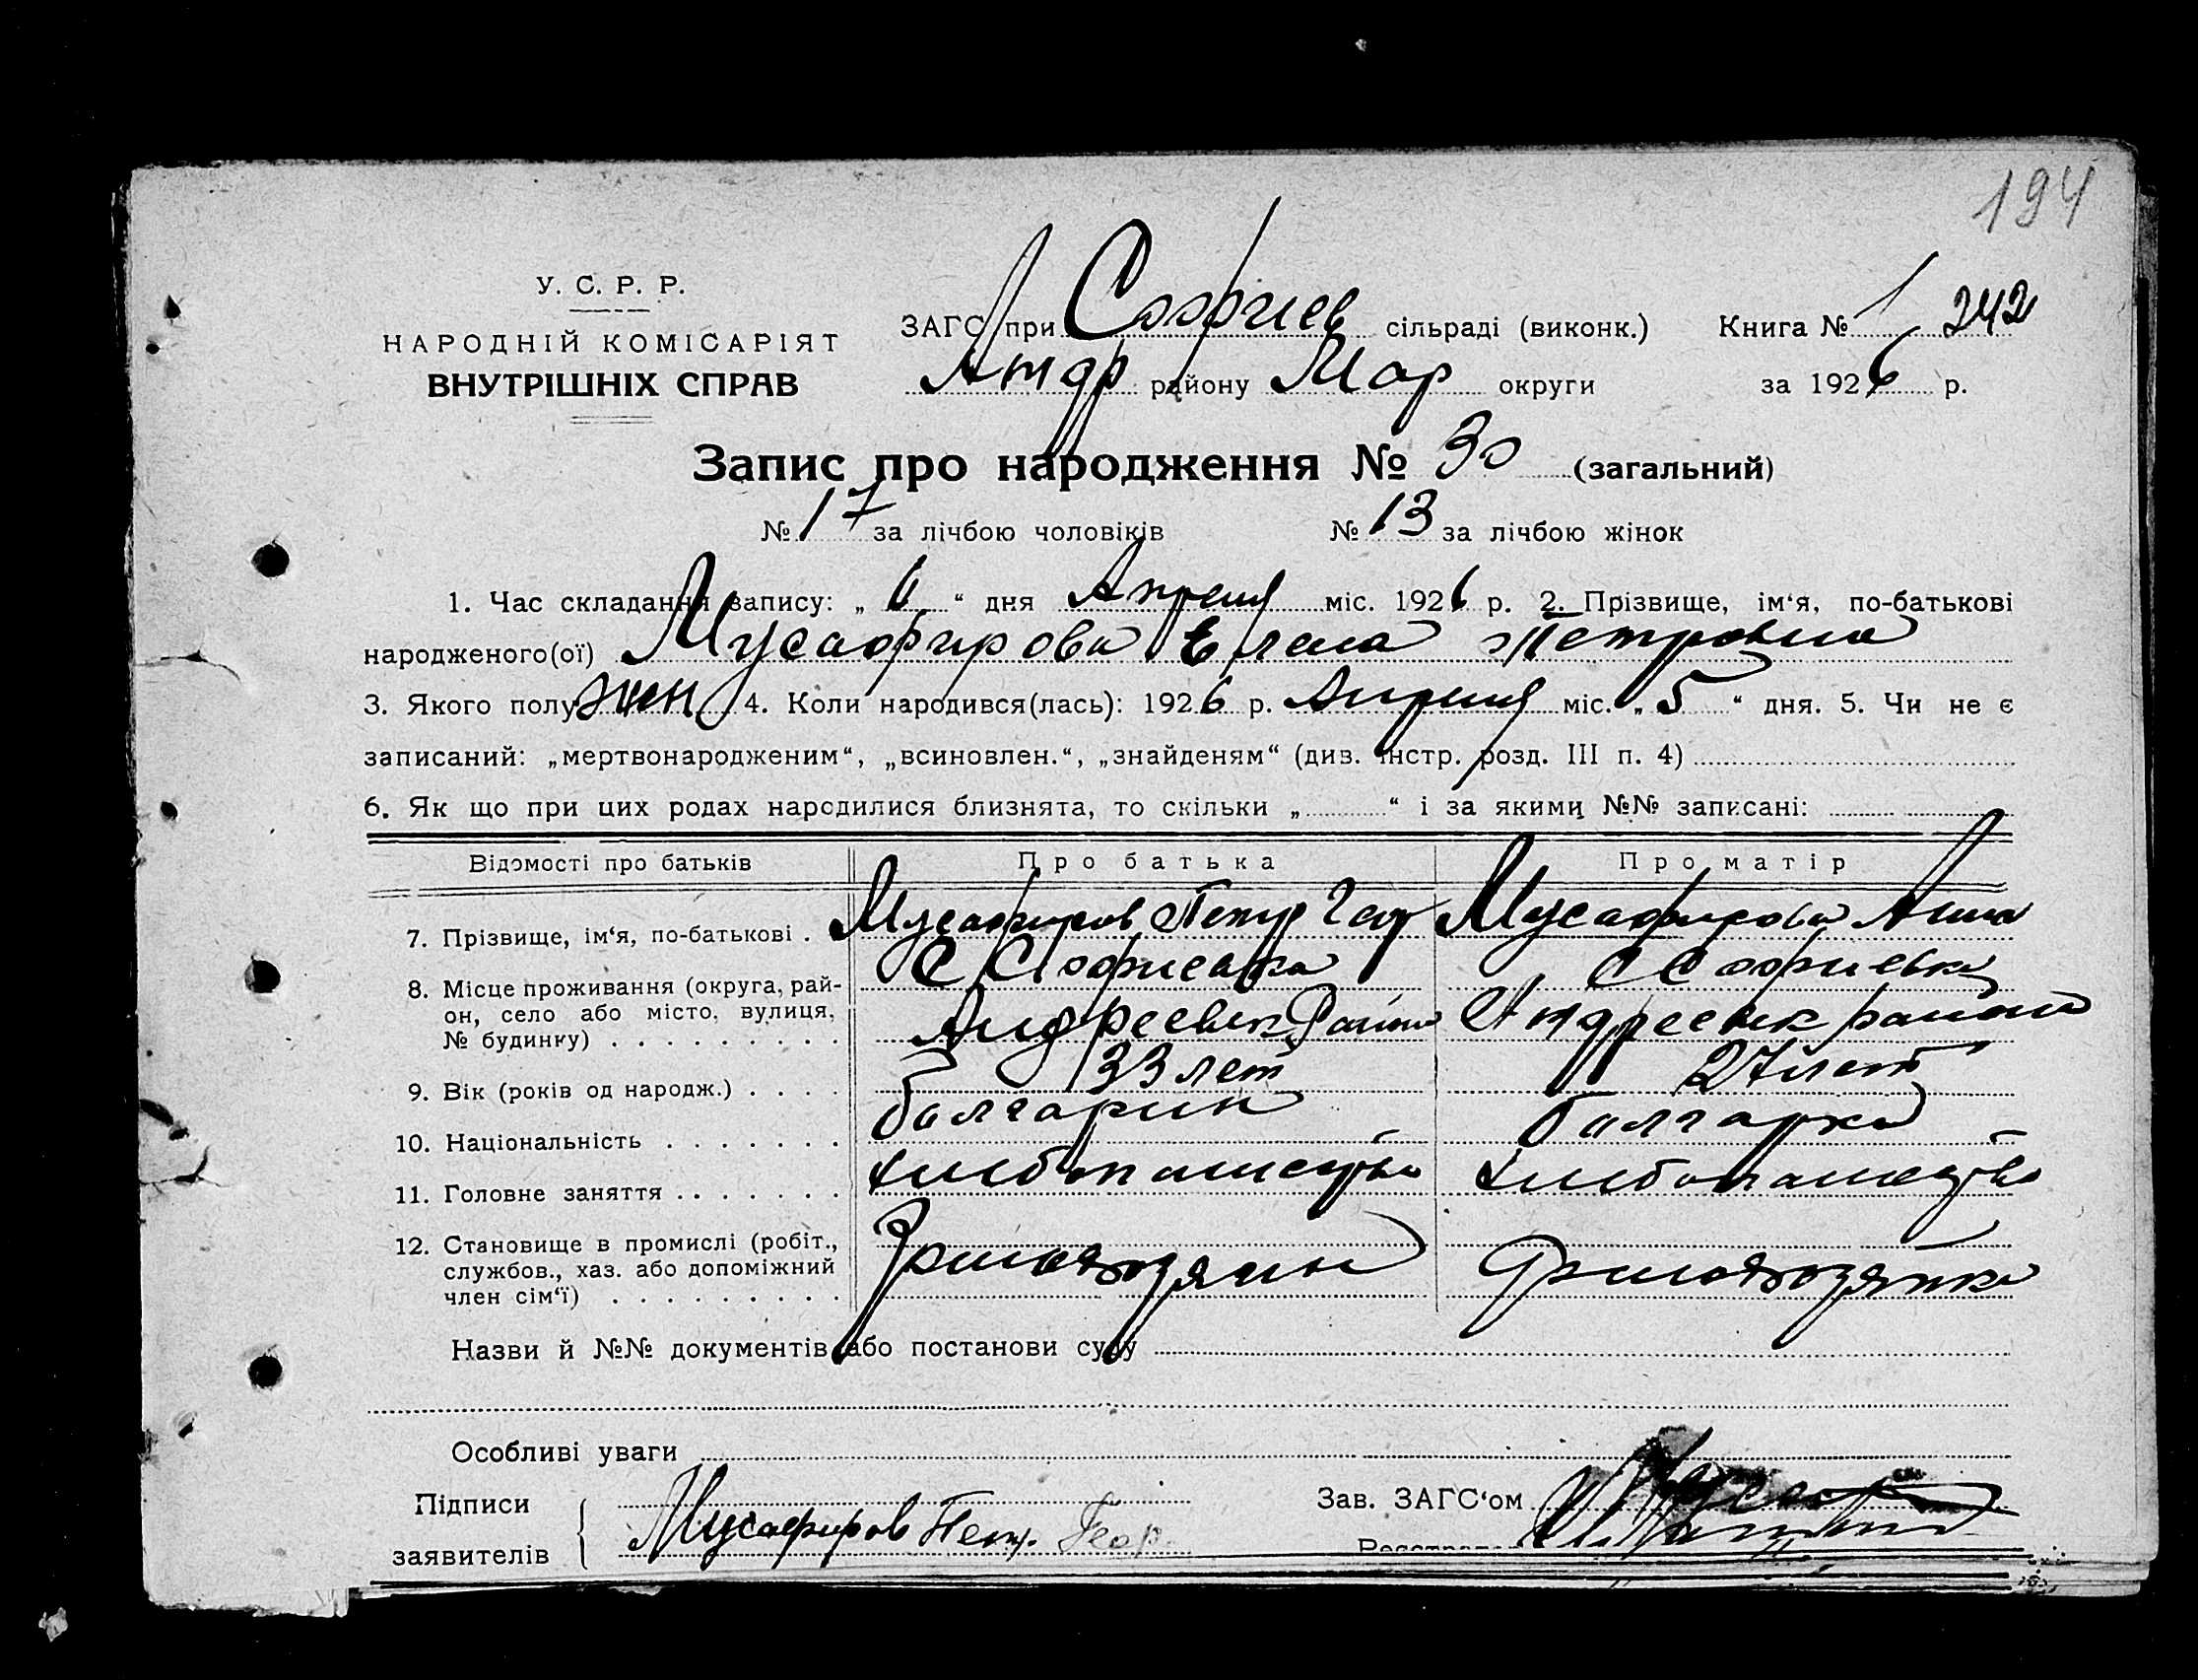 194
У. С. Р. Р.
НАРОДНІЙ КОМІСАРІЯТ
ВНУТРІШНІХ СПРАВ
ЗАГС при Софиев сільраді (виконк.) Книга № 1 242
Андр району Мар округи за 1926 р.
Запис про народження № 30 (загальний)
№ 17 за лічбою чоловіків № 13 за лічбою жінок
1. Час складання запису: „ 6 “ дня Апреля міс. 1926 р. 2. Прізвище, ім‘я, по-батькові
народженого(ої) Мусафирова Елена Петровна
3. Якого полу жен 4. Коли народився(лась): 1926 р. Апреля міс. „ 5 “ дня. 5. Чи не є
записаний: „мертвонародженим“, „всиновлен.“, „знайденям“ (див. інстр. розд. III п. 4)
6. Як що при цих родах народилися близнята, то скільки „ “ і за якими №№ записані:
Відомості про батьків Про батька Про матір
7. Прізвище, ім‘я, по-батькові . Мусафиров Петр Геор Мусафирова Анна
8. Місце проживання (округа, рай- С Софиевка С Софиевка
он, село або місто, вулиця, Андреевск Района Андреевск района
№ будинку) . . . . . . . . .
9. Вік (років од народж.) . . . . 33 лет 27 лет
10. Національність . . . . . . . болгарин болгарка
11. Головне заняття . . . . . . . хлебопашество хлебопашество
12. Становище в промислі (робіт.,
службов., хаз. або допоміжний
член сім‘ї) . . . . . . . . .
Назви й №№ документів або постанови суду
Особливі уваги
Підписи Зав. ЗАГС‘ом
заявителів Мусафиров Петр. Геор.